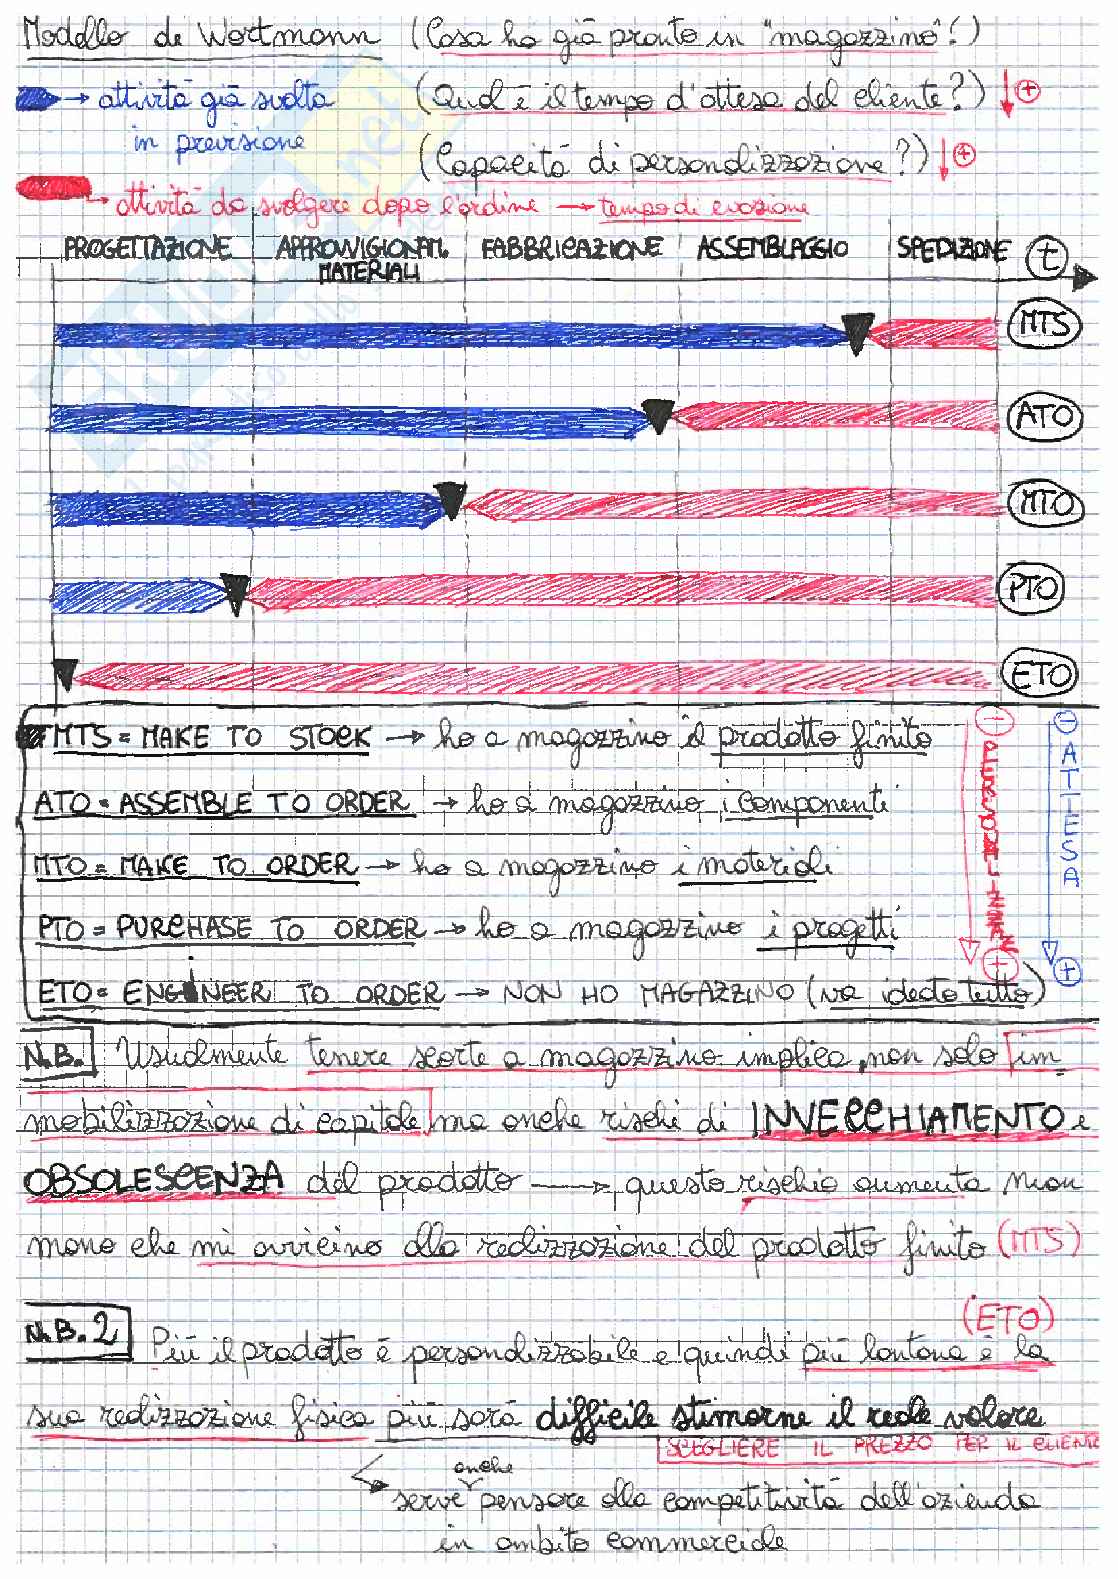 Modello de Wortmann (Cosa ho già pronto in "magazzino"?)
→ attività già svolta (Qual è il tempo d'attesa del cliente?) ↓ +
in previsione (Capacità di personalizzazione?) ↓ +
→ attività da svolgere dopo l'ordine → tempo di evasione
PROGETTAZIONE APPROVVIGIONAM. FABBRICAZIONE ASSEMBLAGGIO SPEDIZIONE t
MATERIALI
MTS
ATO
MTO
PTO
ETO
MTS = MAKE TO STOCK → ho a magazzino il prodotto finito
ATO = ASSEMBLE TO ORDER → ho a magazzino i componenti
MTO = MAKE TO ORDER → ho a magazzino i materiali
PTO = PURCHASE TO ORDER → ho a magazzino i progetti
ETO = ENGINEER TO ORDER → NON HO MAGAZZINO (va ideato tutto)
- PERSONALIZZAZ +
- ATTESA +
N.B. Usualmente tenere scorte a magazzino implica, non solo im
mobilizzazione di capitale ma anche rischi di INVECCHIAMENTO e
OBSOLESCENZA del prodotto → questo rischio aumenta man
mano che mi avvicino alla realizzazione del prodotto finito (MTS)
(ETO)
N.B.2 Più il prodotto è personalizzabile e quindi più lontana è la
sua realizzazione fisica più sarà difficile stimarne il reale valore
SCEGLIERE IL PREZZO PER IL CLIENTE
anche
serve pensare alla competitività dell'azienda
in ambito commerciale